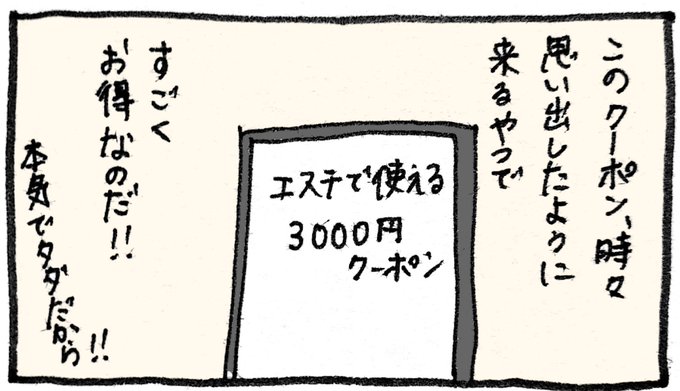 このクーポン、時々
思い出したように
来るやつで
エステで使える
3000円
クーポン
すごく
お得なのだ!!
本気でタダだから!!